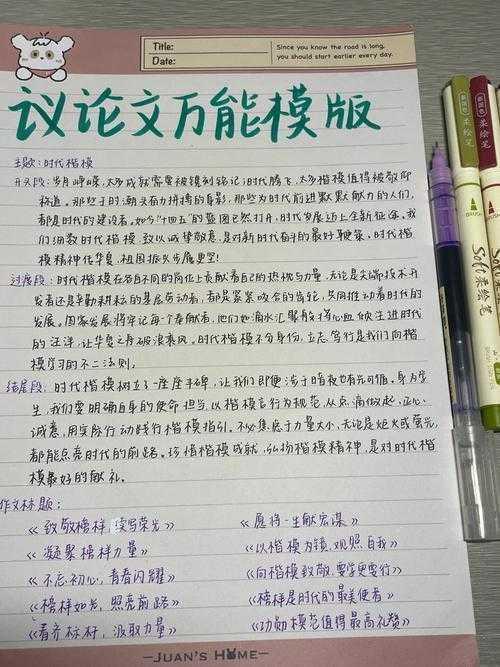 Title:
Date:
Since you know the road is long,
you should start earlier every day.
议论文万能模版
主题：时代楷模
开头段：岁月峥嵘，太多成就需要被镌刻铭记；时代腾飞，太多楷模值得被敬仰
称道。那些于时朝夕奋力拼搏的身影，那些为时代前进默默献力的人们，
都是时代的建设者。如今"十四五"的蓝图已然打开，时代发展迈上全新征途。我
们细数时代楷模，致以诚挚敬意，是对新时代奋斗的最好鞭策。时代楷
模精神在华夏，祖国振兴步履更坚！
过渡段：时代楷模在各自不同的岗位上贡献着自己的热忱与力量，无论是尖端技术开
发者还是辛勤耕耘的基层劳动者，都是紧紧咬合的齿轮，共同推动着时代的
发展。国家发展将牢记每个奉献者，他们如滴水汇聚般将心血倾注进时代
的汪洋，让华夏之舟破浪乘风。时代楷模不分身份，立志笃行是我们向楷
模学习的不二法则。
结尾段：时代楷模树立了一座座丰碑，让我们即便涉于暗夜也有光可循。身为学
生，我们要明确自身的使命担当，以楷模言行为规范，从点滴做起，正心
诚意，用实际行动践行楷模指引。不必焦虑于力量大小，无论是炬火或萤光，
都能点亮时代的前路。珍惜楷模成就，弘扬楷模精神，是对时代楷
模最好的献礼。
作文标题：
《致敬榜样，续写荣光》
《愿将一生献宏谋》
《凝聚榜样力量》
《以楷模为镜，观照自我》
《不忘初心，青春闪耀》
《向楷模致敬，要学更要行》
《榜样如光，照亮前路》
《榜样是时代的最美使者》
《看齐标杆，汲取力量》
《功勋模范值得最高礼赞》
JUAN'S HOME
柔绘笔
柔绘笔
BRUSH
BRUSH
Soft柔绘笔